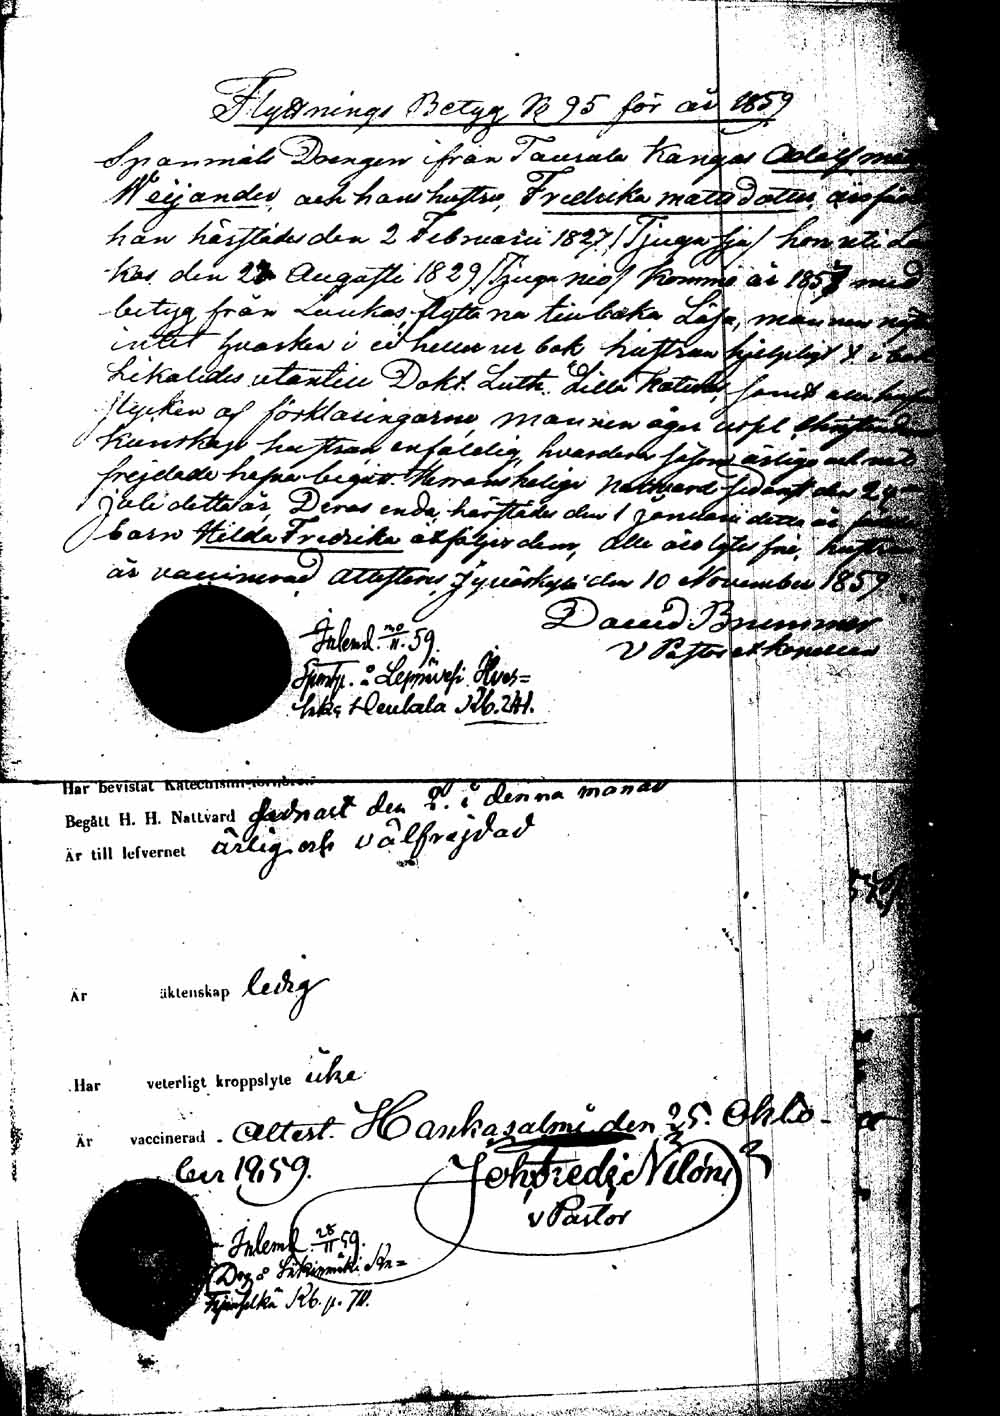 Flyttnings Betyg No 95 för år 1859
Spanmåls Drengen ifrån Taurula Kangas Adolf
Weijander, och hans hustru, Fredrika matts dotter,
han härstädes den 2 Februarii 1827 /Tjugu sju/ hon uti
kas den 22 Augusti 1829 /Tjugu nio/ Kommo år 1857 med
betyg från Laukas, flytta nu tillbaka mannen
intet hvarken i eller ur bok hustrun hjelpligt
likaledes utantill Dokt. Luth. Lilla Kateches, samt
stycken af förklaringarne mannen äger
kunskap hustrun enfaldig, hvardera såsom ärliga och väl
frejdade hafva begått Herrans heliga Nattvard sednast den 24
juli detta år. Deras enda, härstädes den 1 Januari detta år födda
barn Hilda Fredrika åtföljer dem, Alla äro lytes fria, hustrun
är vaccinerad, Attesteras, Jyväskylä den 10 November 1859
David Brummer
v Pastor
Inlemd. 20/11. 59.
å Leppävesi
Kb. 241.
Har bevistat Katechismi-förhören
Begått H. H. Nattvard sednast den 2. i denna månad
Är till lefvernet ärlig och välfrejdad
Är äktenskap ledig
Har veterligt kroppslyte icke
Är vaccinerad. Attest. Hankasalmi den 25. Okto-
ber 1859.
Joh. Fredr. Nilóni
v Pastor
Inlemd. 28/11 59.
Kb. p. 711.